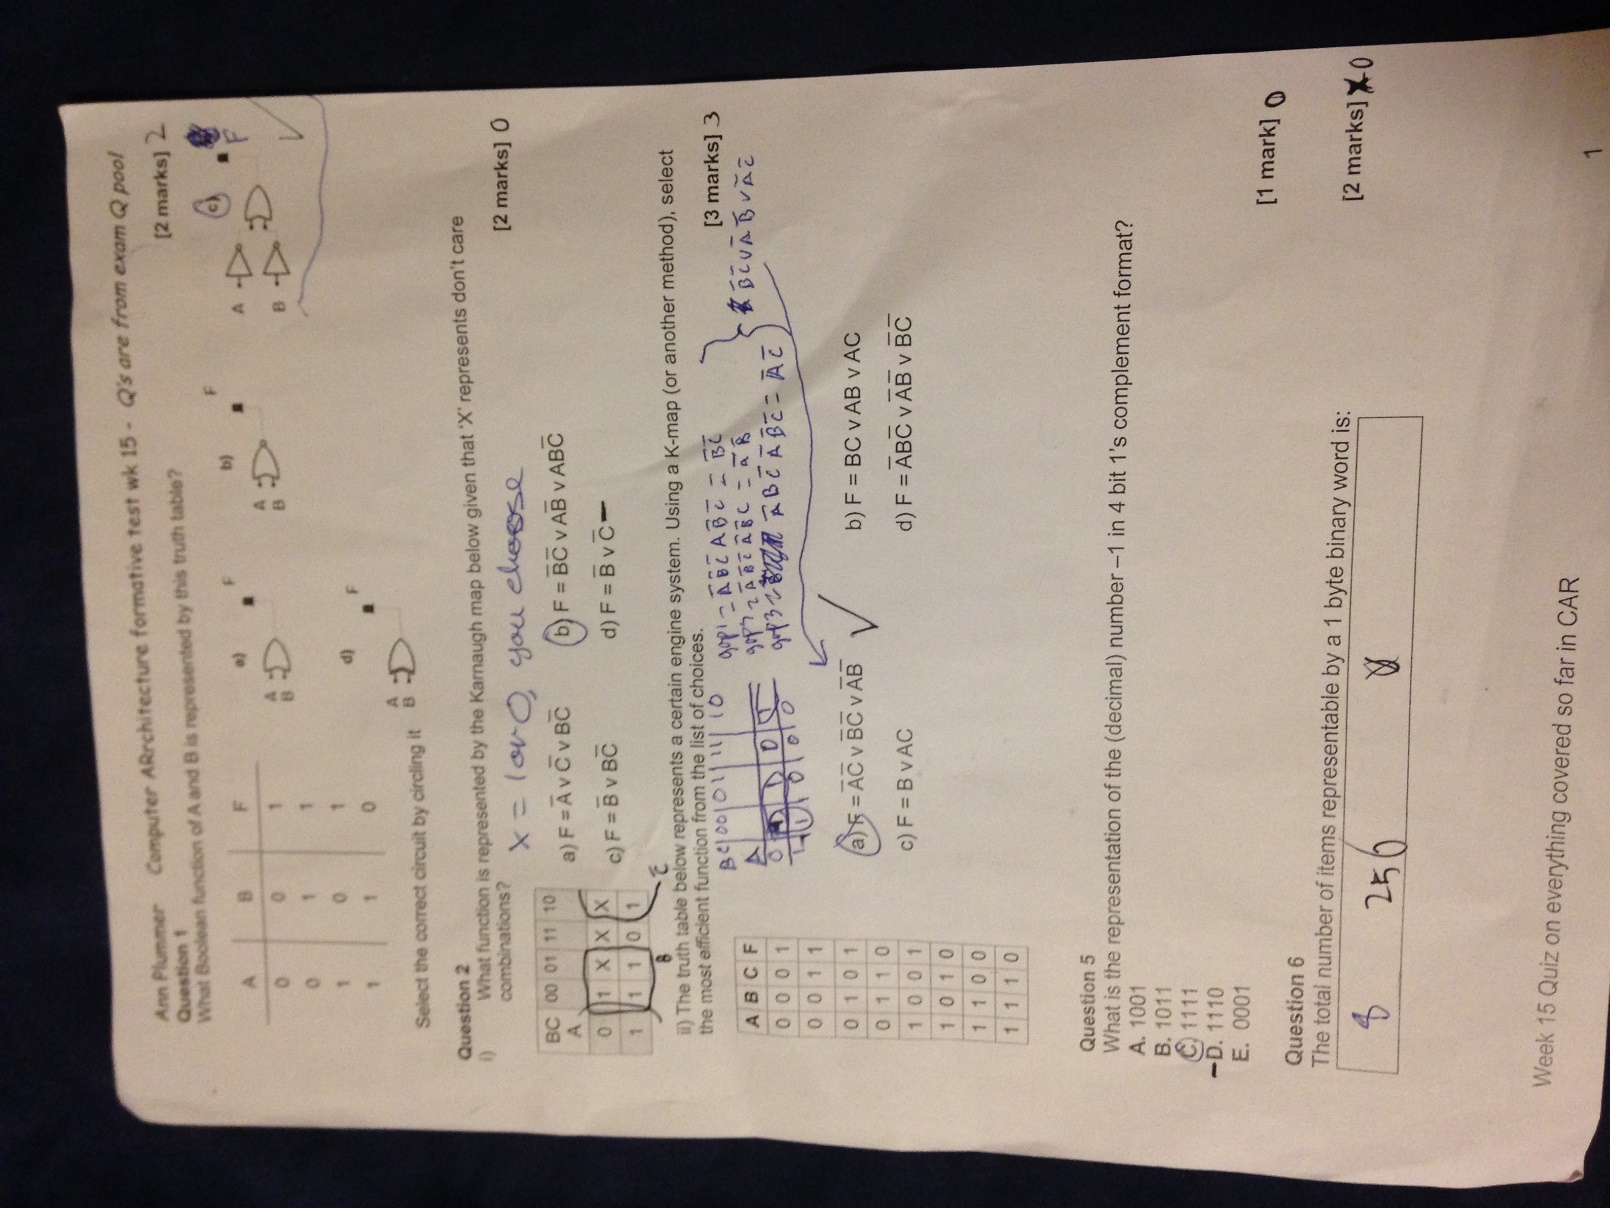 Ann Plummer Computer ARchitecture formative test wk 15 - Q's are from exam Q pool
Question 1 [2 marks] 2
What Boolean function of A and B is represented by this truth table?
A B F
0 0 1
0 1 1
1 0 1
1 1 0
a) A B F
b) A B F
c) A B F
d) A B F
Select the correct circuit by circling it
Question 2
i) What function is represented by the Karnaugh map below given that 'X' represents don't care
combinations? [2 marks] 0
X = 1 or 0, you choose
BC 00 01 11 10
A
0 1 X X X
1 1 1 0 1
B̅
C̅
a) F = A̅ v C̅ v BC̅
b) F = B̅C̅ v A̅B̅ v ABC̅
c) F = B̅ v BC̅
d) F = B̅ v C̅ –
ii) The truth table below represents a certain engine system. Using a K-map (or another method), select
the most efficient function from the list of choices. [3 marks] 3
A B C F
0 0 0 1
0 0 1 1
0 1 0 1
0 1 1 0
1 0 0 1
1 0 1 0
1 1 0 0
1 1 1 0
BC 00 01 11 10
A
0 1 1 0 1
1 1 0 0 0
a) F = A̅C̅ v B̅C̅ v A̅B̅ ✓
b) F = BC v AB v AC
c) F = B v AC
d) F = A̅B̅C̅ v A̅B̅ v B̅C̅
Question 5
What is the representation of the (decimal) number –1 in 4 bit 1's complement format?
A. 1001
B. 1011
C. 1111
–D. 1110
E. 0001
[1 mark] 0
Question 6
The total number of items representable by a 1 byte binary word is:
[2 marks] 0
8 256
Week 15 Quiz on everything covered so far in CAR
1